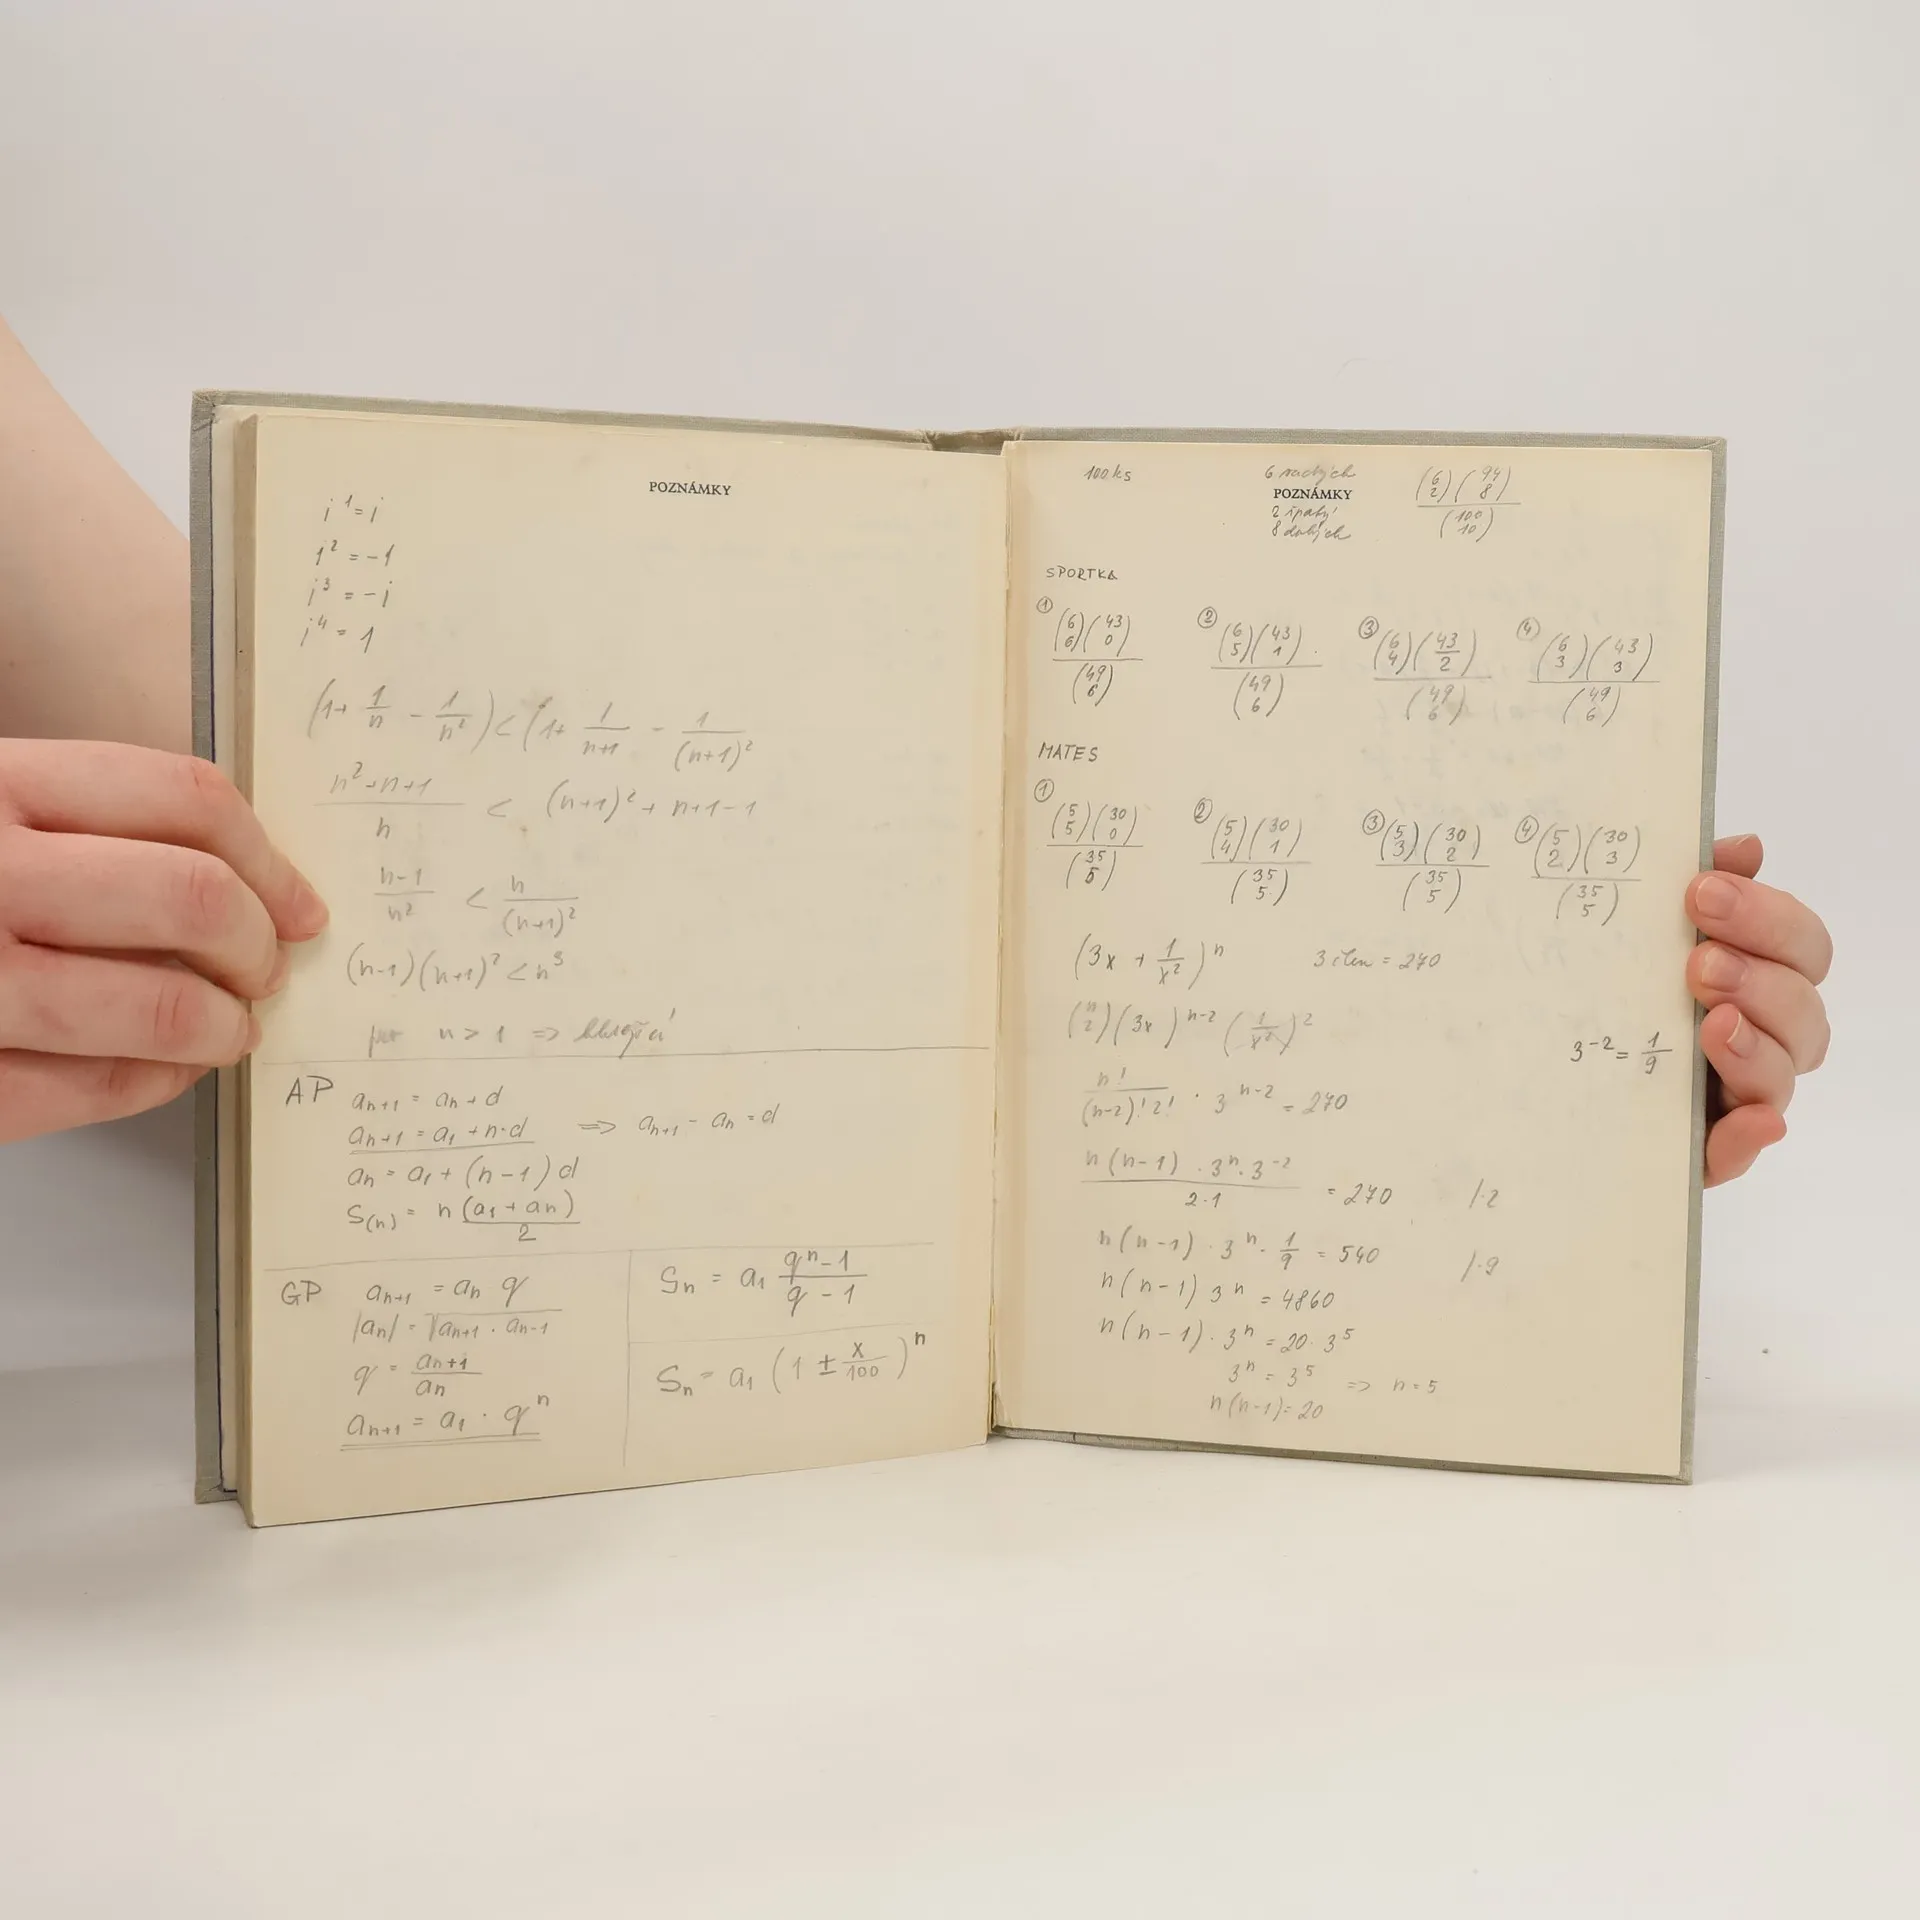 POZNÁMKY
i¹ = i
i² = -1
i³ = -i
i⁴ = 1
(1 + 1/n - 1/n²) < (1 + 1/(n+1) - 1/(n+1)²
(n² + n + 1)/n < (n+1)² + n+1-1
(n-1)/n² < n/(n+1)²
(n-1)(n+1)² < n³
n > 1 =>
AP
aₙ₊₁ = aₙ + d
aₙ₊₁ = a₁ + n·d => aₙ₊₁ - aₙ = d
aₙ = a₁ + (n-1)d
S₍ₙ₎ = n (a₁ + aₙ)/2
GP
aₙ₊₁ = aₙ q
|aₙ| = √aₙ₊₁ · aₙ₋₁
q = aₙ₊₁/aₙ
aₙ₊₁ = a₁ · qⁿ
Sₙ = a₁ (qⁿ-1)/(q-1)
Sₙ = a₁ (1 ± x/100)ⁿ
100 ks 6
POZNÁMKY
2 špatný
8 dobrých
(6 2)(94 8)/(100 10)
SPORTKA
① (6 6)(43 0)/(49 6) ② (6 5)(43 1)/(49 6) ③ (6 4)(43/2)/(49 6) ④ (6 3)(43 3)/(49 6)
MATES
① (5 5)(30 0)/(35 5) ② (5 4)(30 1)/(35 5) ③ (5 3)(30 2)/(35 5) ④ (5 2)(30 3)/(35 5)
(3x + 1/x²)ⁿ 3 člen = 270
(n 2)(3x)ⁿ⁻² (1/x²)²
3⁻² = 1/9
n!/(n-2)!2! · 3ⁿ⁻² = 270
n(n-1) · 3ⁿ · 3⁻²/2·1 = 270 /·2
n(n-1) · 3ⁿ · 1/9 = 540 /·9
n(n-1) 3ⁿ = 4860
n(n-1) · 3ⁿ = 20 · 3⁵
3ⁿ = 3⁵ => n = 5
n(n-1) = 20